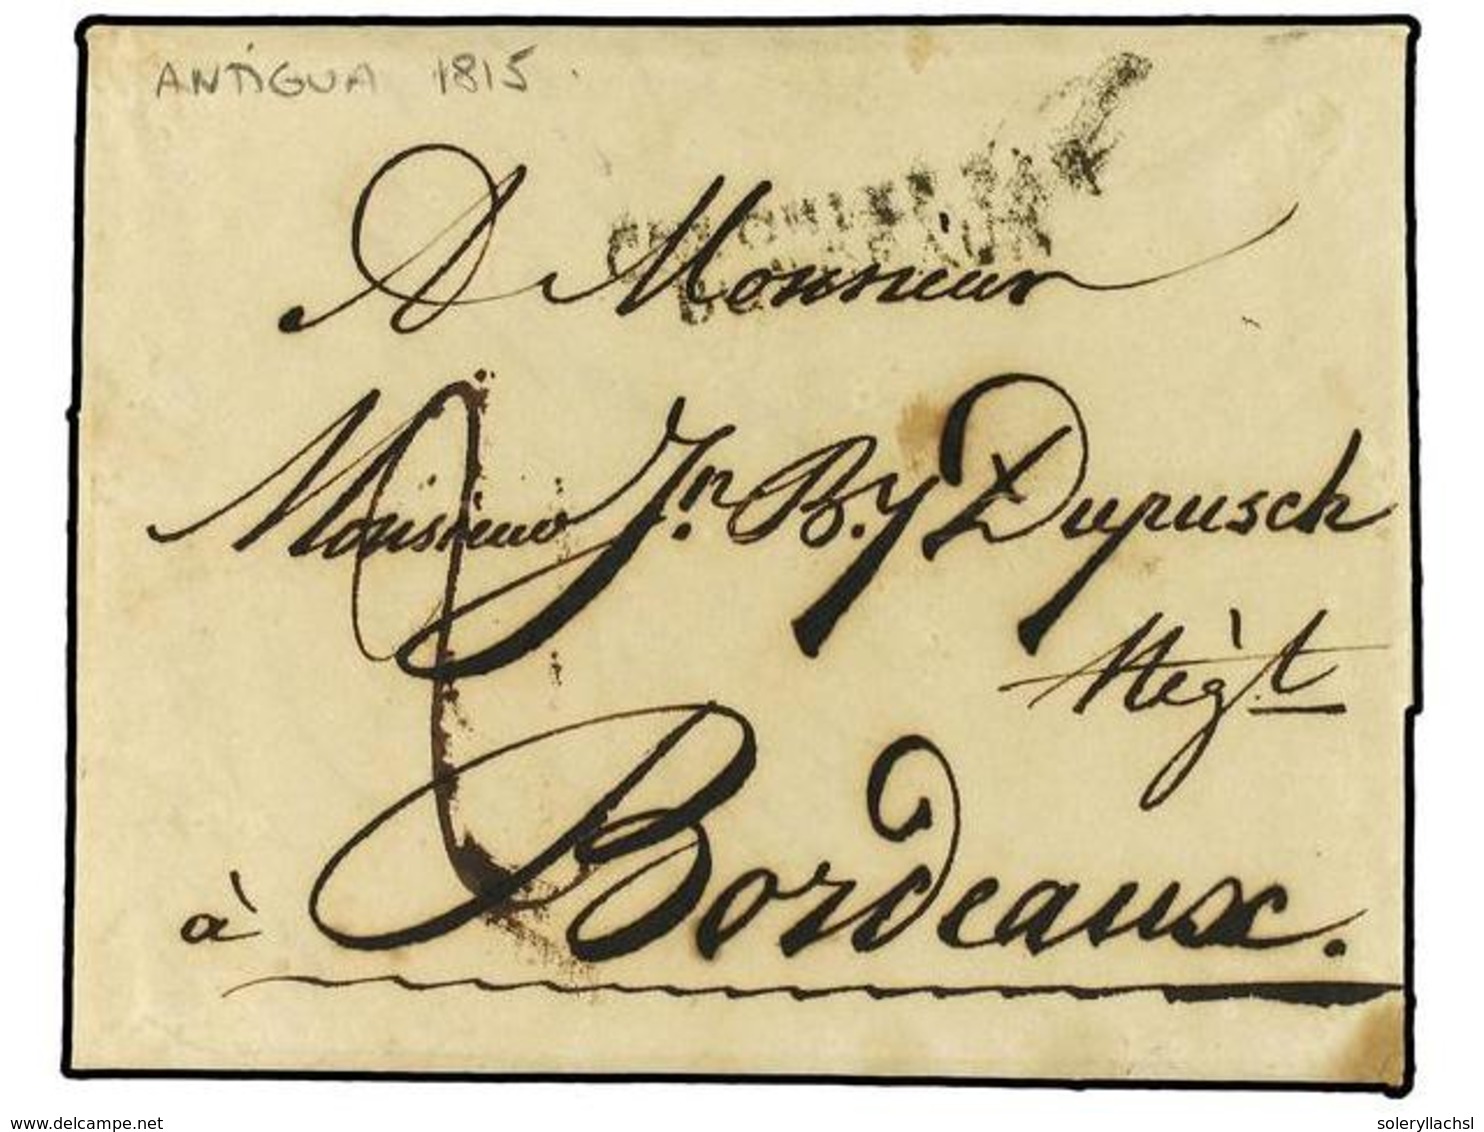 ANTIGUA 1815
A Monsieur
BORDEAUX
Monsieur Jn. B. y Dupusch
Nègt
à Bordeaux.
delcampe.net
soleryllachsl